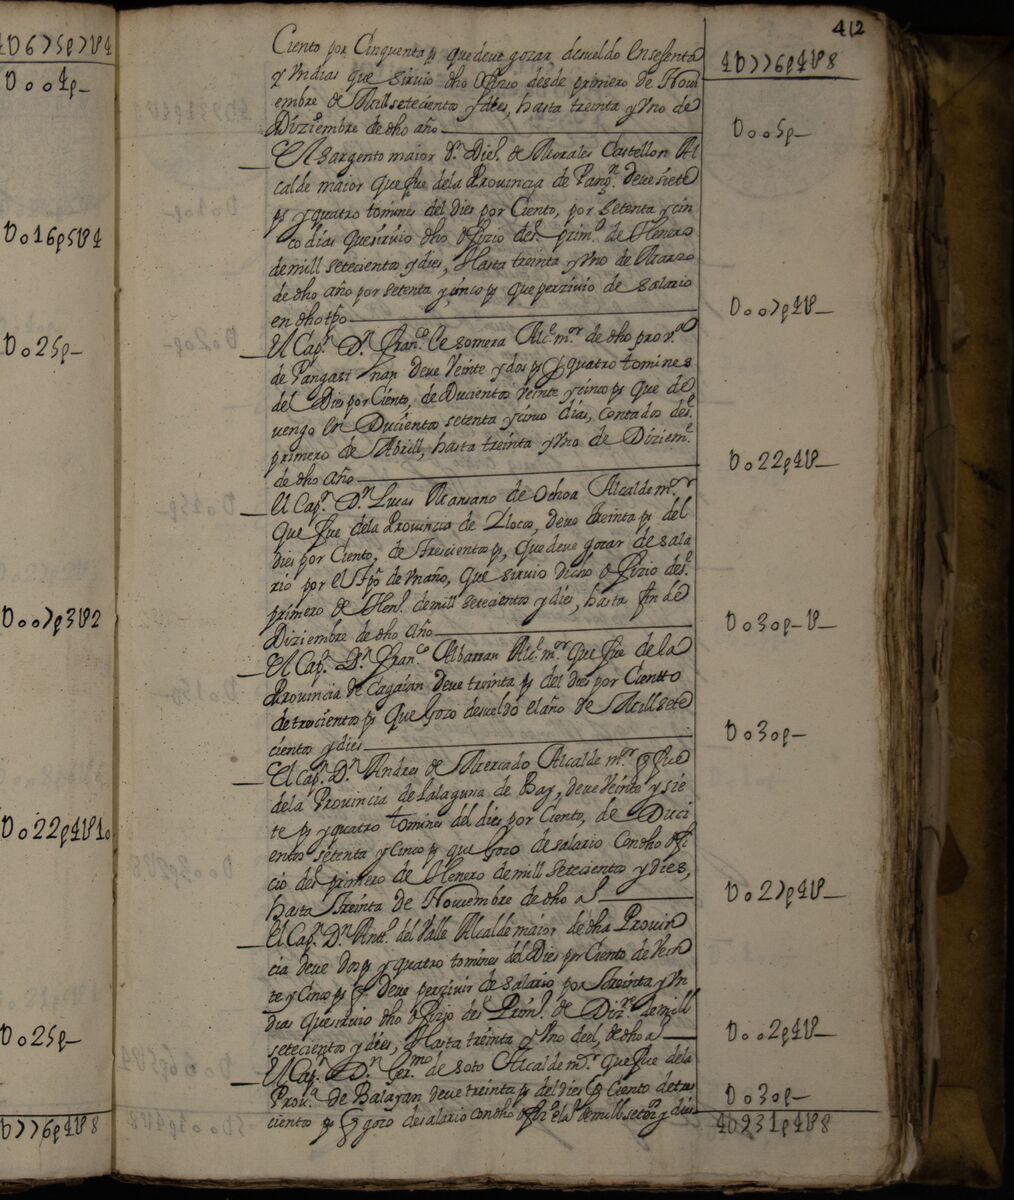 4U675p7U4
U001p_
U016p5U4
U025p_
U007p3U2
U022p4U10
U025p_
U776p4U8
412
Ciento por Cinquenta ps que deve gozar, desueldo En sesenta
y Un dias que siruio dho offizio desde primero de Nou
embre de Mill setecientos y dies, hasta treinta y Uno de
Diziembre de dho año
4U776p4U8
U005p_
El sargento maior Dn Die.º de Morales Castellon Al
calde maior que fue dela Prouincia de Pang.n deue siete
ps y quatro tomines del dies por Ciento, por setenta y sin
co dias que siruio dho offizio des.e prim.o de Henero
demill setecientos y dies, Hasta treinta y Uno de Marzo
de dho año por setenta y sinco ps que perziuio de salario
en dho tpo
U007p4U_
El Cap.n D.n Fran.co Lesomera Alc.e m.or de dho prov.a
de Pangasinan Deue Veinte y dos ps y quatro tomines
del Dies por Ciento, de Ducientos Veinte y sinco ps que de
uengo En Ducientos setenta y sinco dias, Contados des.e
primero de Abrill, hasta treinta y Uno de Diziem.e
de dho año
U022p4U_
El Cap.n D.n Lucas Mansano de Ochoa Alcalde m.or
que fue dela Prouincia de Ylocos, deue treinta ps del
dies por Ciento, de Trescientos ps, que deue gozar de sala
rio por el tpo de Un año, que siruio dicho offizio des.e
primero de Hen.o demill setecientos y dies, hasta fin de
Diziembre de dho año
U030p_U_
El Cap.n D.n Fran.co Albarran Alc.e m.or que fue de la
Prouincia de Cagaian deue treinta ps del dies por Cientto
de trescientos ps que Gozo desueldo el año de Mill sete
cientos y dies
U030p_
El Cap.n D.n Andres de Mercado Alcalde m.or q fue
dela Prouincia de Lalaguna de Bay, deue Veinte y sie
te ps y quatro tomines del dies por Ciento, de Duci
entos setenta y Cinco ps que Gozo de salario Con dho offi
cio des.e primero de Henero demill setecientos y dies,
hasta Treinta de Nouiembre de dho a.o
U027p4U_
El Cap.n D.n Ant.o del Valle Alcalde maior de dha Prouin
cia deue Dos ps y quatro tomines del Dies por Ciento de Vein
te y Cinco ps q deue perziuir de salario por Treinta y Un
dias que siruio dho offizio des.e Prim.o de Diz.e demill
setecientos y dies, Hasta treinta y Uno deel, de dho a.o
U002p4U_
El Cap.n D.n Ger.mo de Soto Alcalde m.or que fue dela
Prou.a de Balayan deue treinta ps del dies p Ciento de tres
cientos ps q gozo de salario con dho offi.o el a.o demill setez.os y dies
U030p_
4U931p4U8